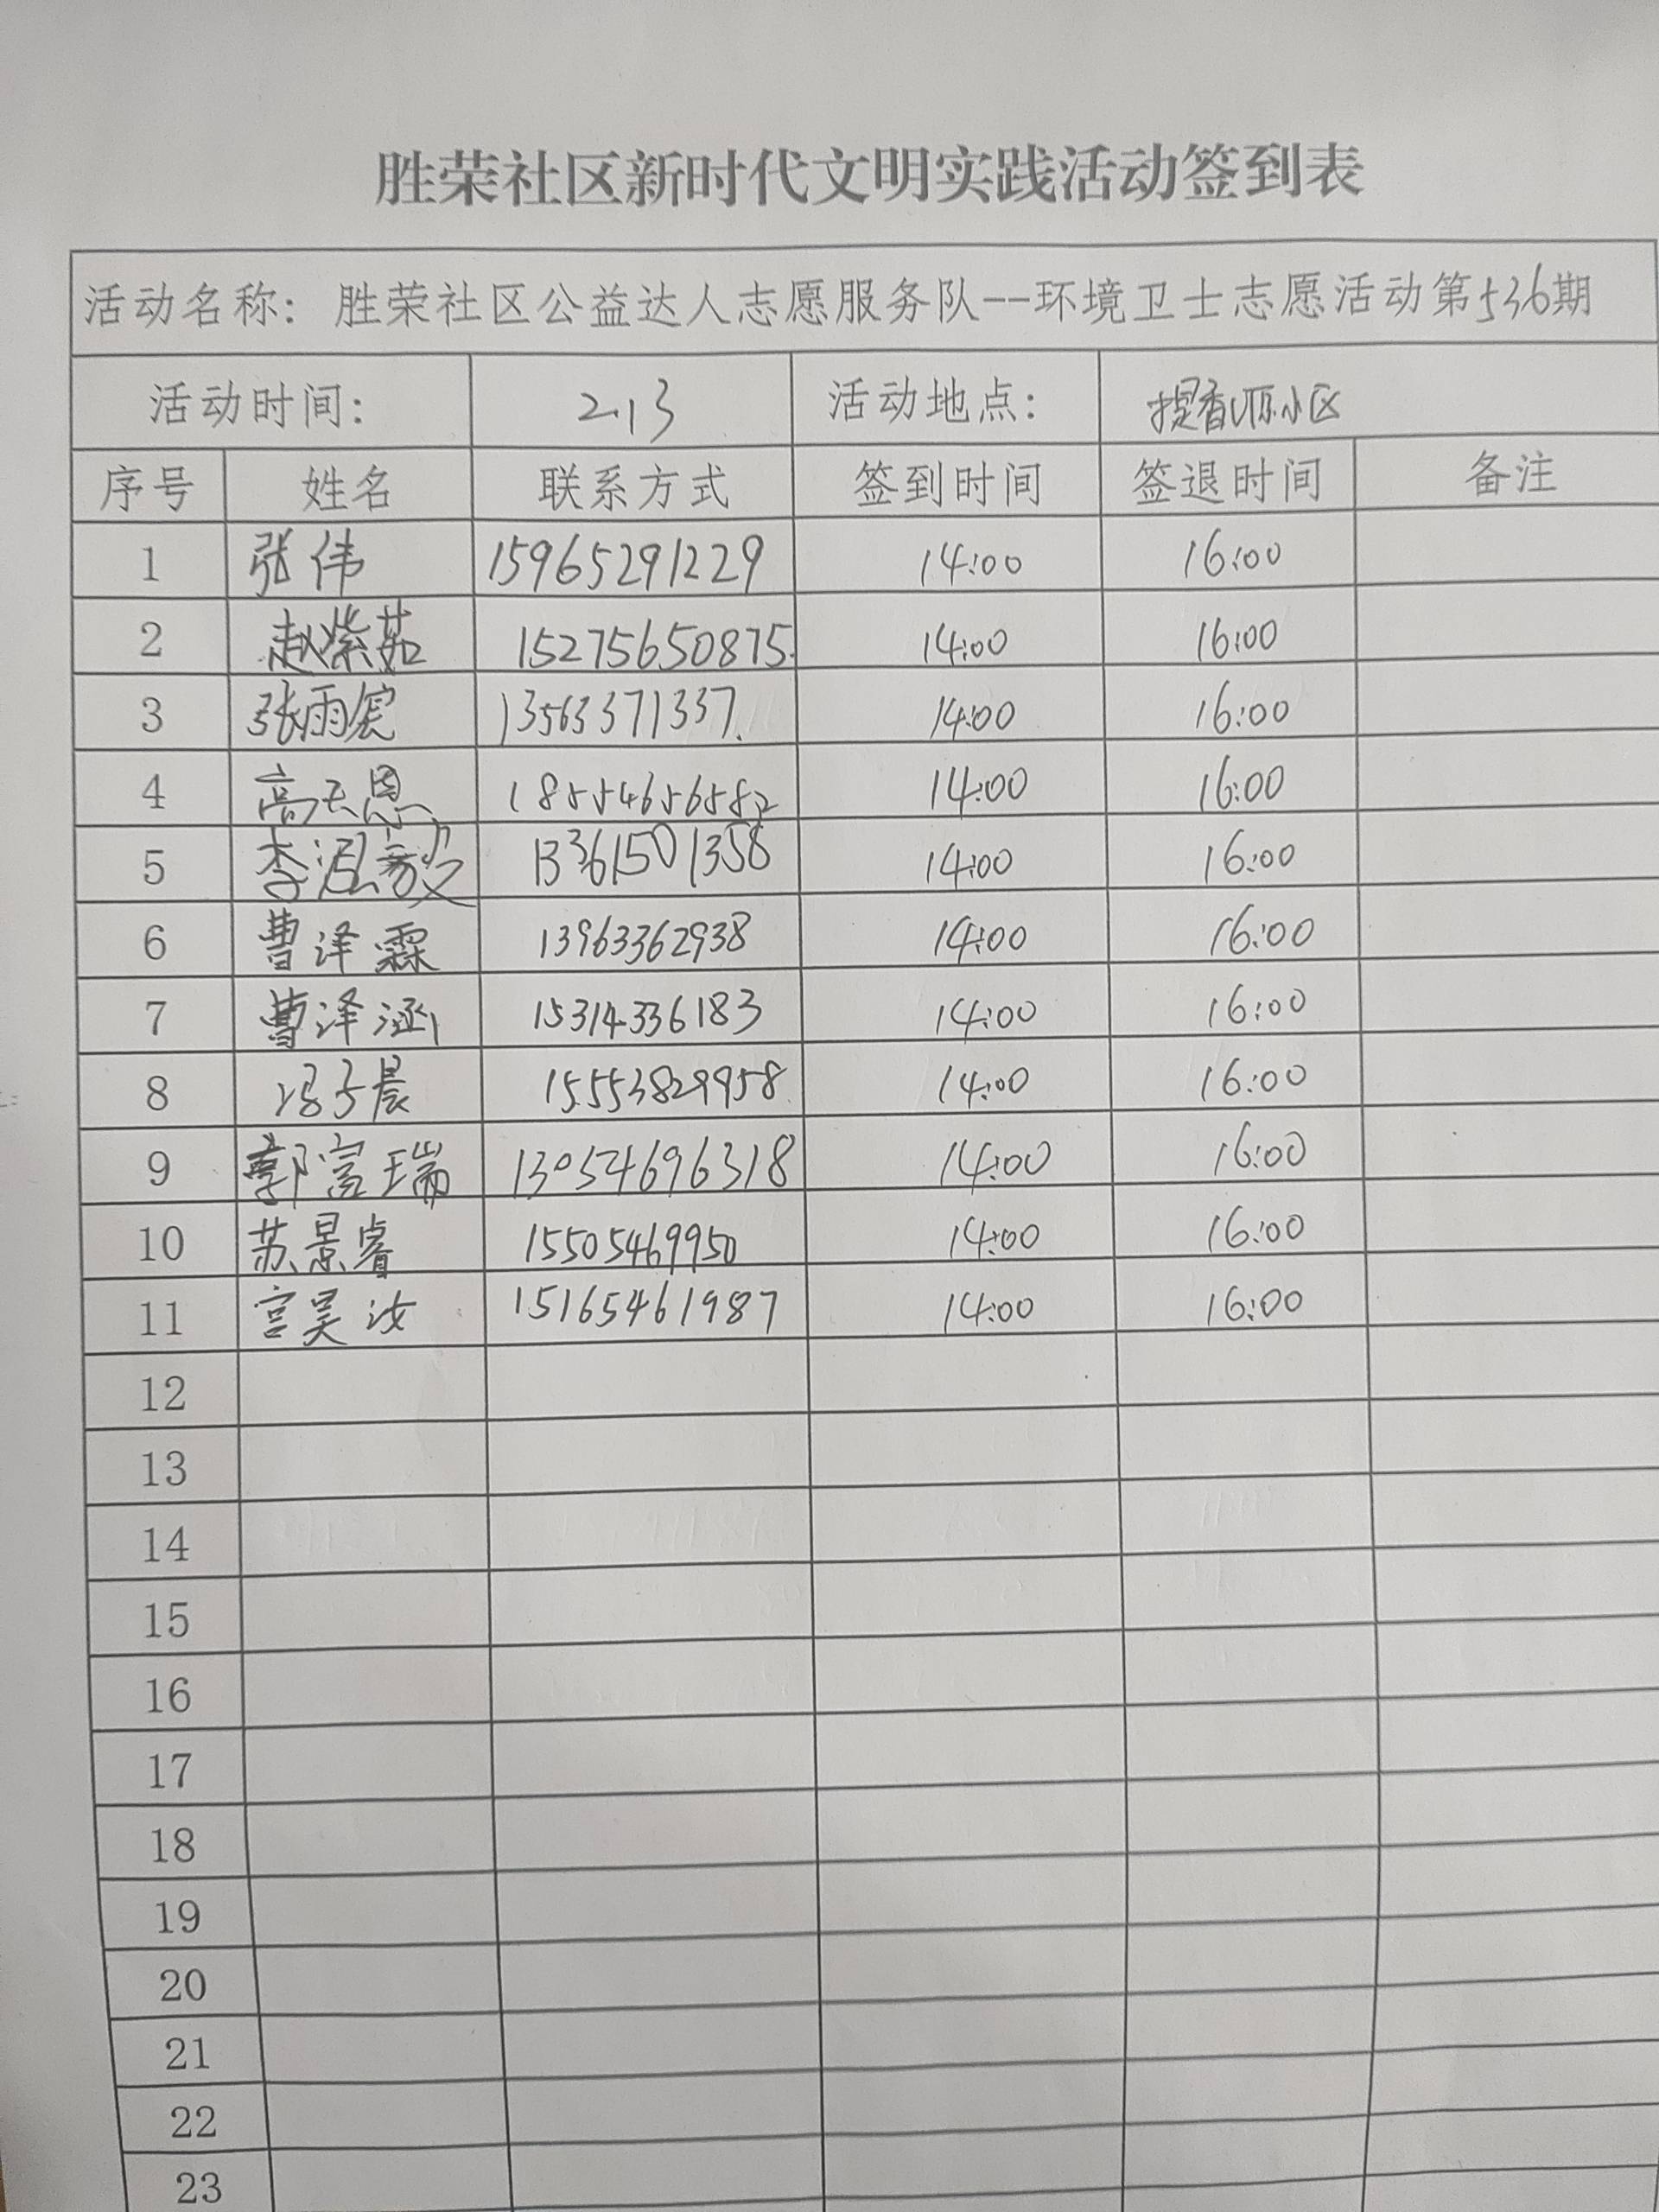 胜荣社区新时代文明实践活动签到表
活动名称：胜荣社区公益达人志愿服务队--环境卫士志愿活动第536期
活动时间： 2.13 活动地点： 提香郡小区
序号 姓名 联系方式 签到时间 签退时间 备注
1 张伟 15965291229 14:00 16:00
2 赵紫茹 15275650875 14:00 16:00
3 张雨宸 13563371337 14:00 16:00
4 高天恩 18554656582 14:00 16:00
5 李泓毅 13361501358 14:00 16:00
6 曹泽霖 13963362938 14:00 16:00
7 曹泽涵 15314336183 14:00 16:00
8 冯子晨 15553829958 14:00 16:00
9 郭富瑞 13054696318 14:00 16:00
10 苏景睿 15505469950 14:00 16:00
11 宫昊汝 15165461987 14:00 16:00
12
13
14
15
16
17
18
19
20
21
22
23